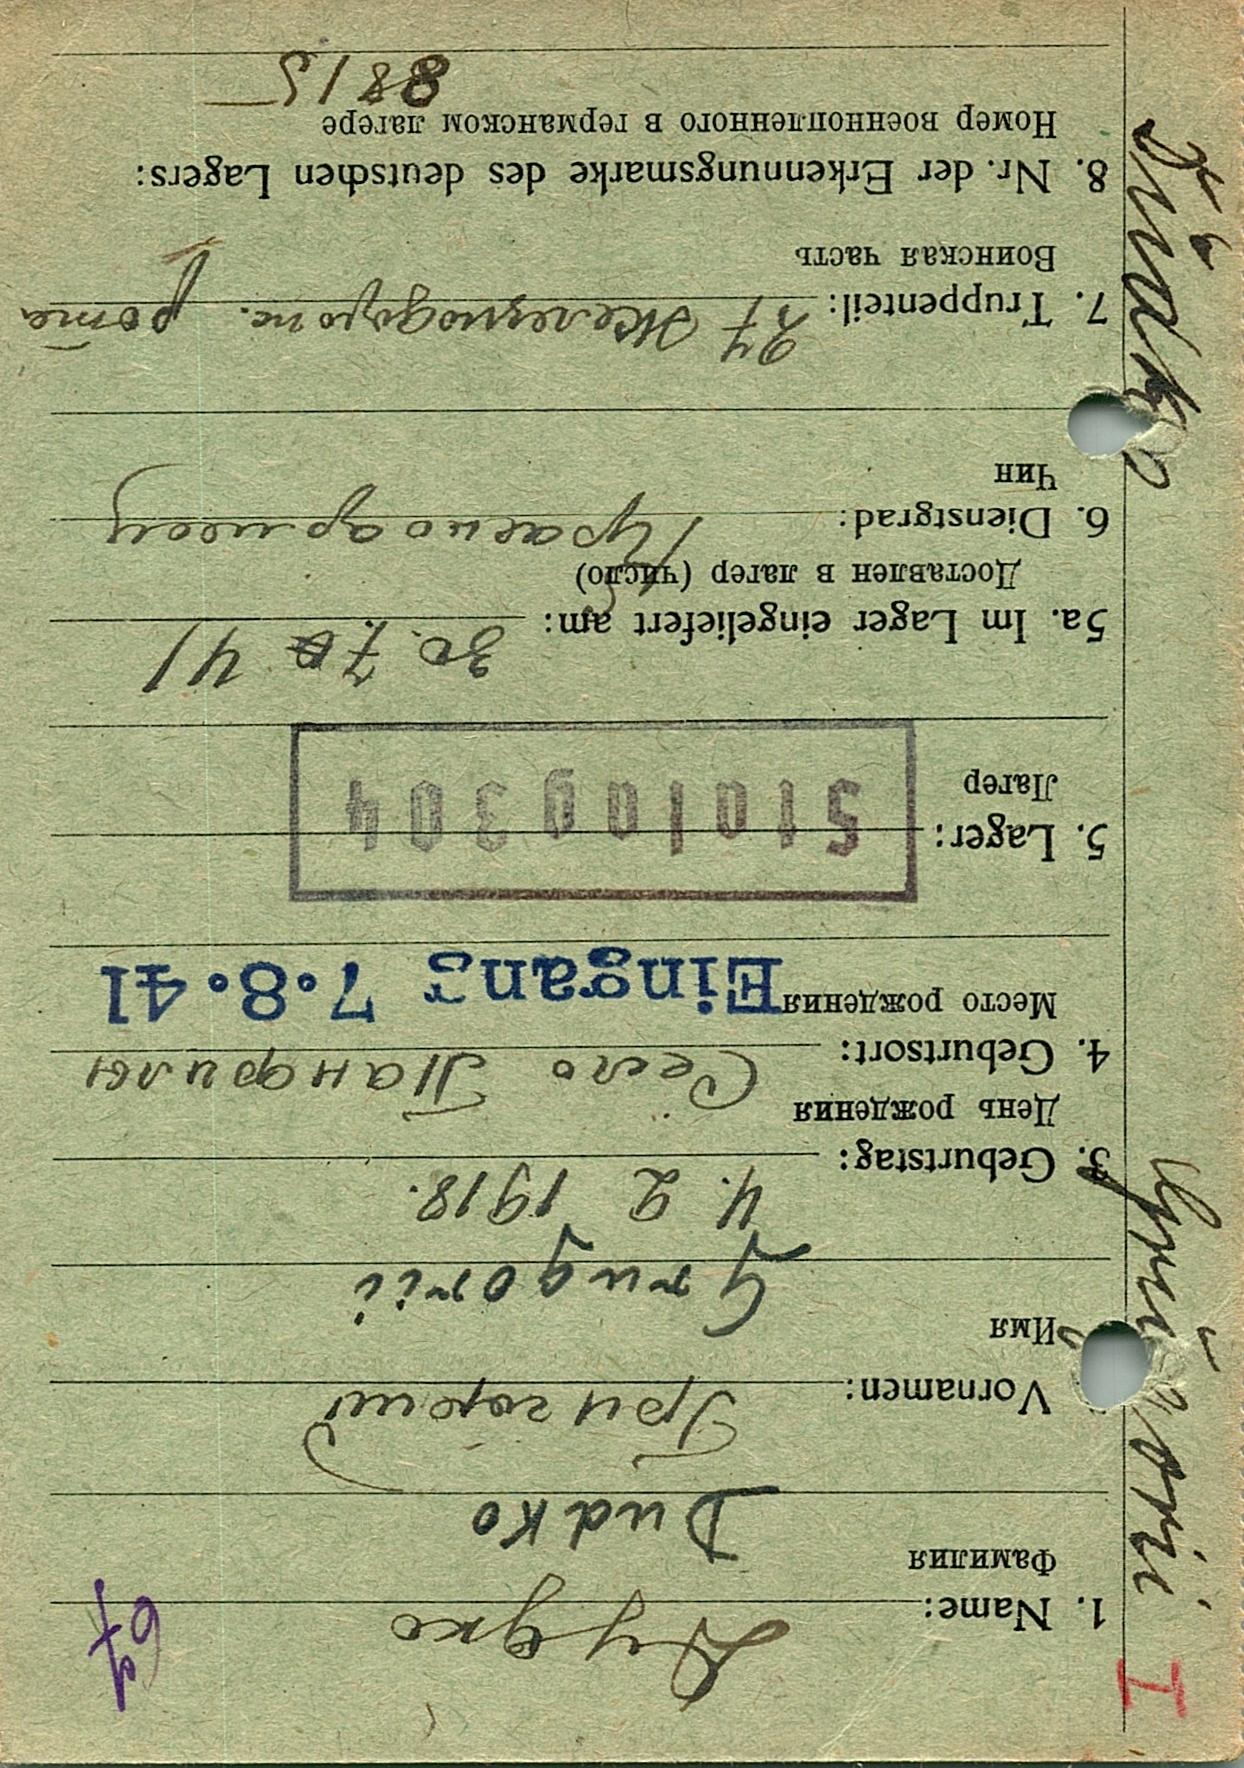 I
67
1. Name: Дудко
Фамилия
Dudko
Vornamen: Григорий
Имя
Grugorii
3. Geburtstag: 4. 2 1918.
День рождения
4. Geburtsort: Село Панфилы
Место рождения
Eingang 7.8.41
5. Lager: Stalag 304
Лагер
5a. Im Lager eingeliefert am: 30. 7. 41
Доставлен в лагер (число)
6. Dienstgrad: Красноармеец
Чин
7. Truppenteil: 27 Железнодорож. рота
Воинская часть
8. Nr. der Erkennungsmarke des deutschen Lagers:
Номер военнопленного в германском лагере
8815
Dudko